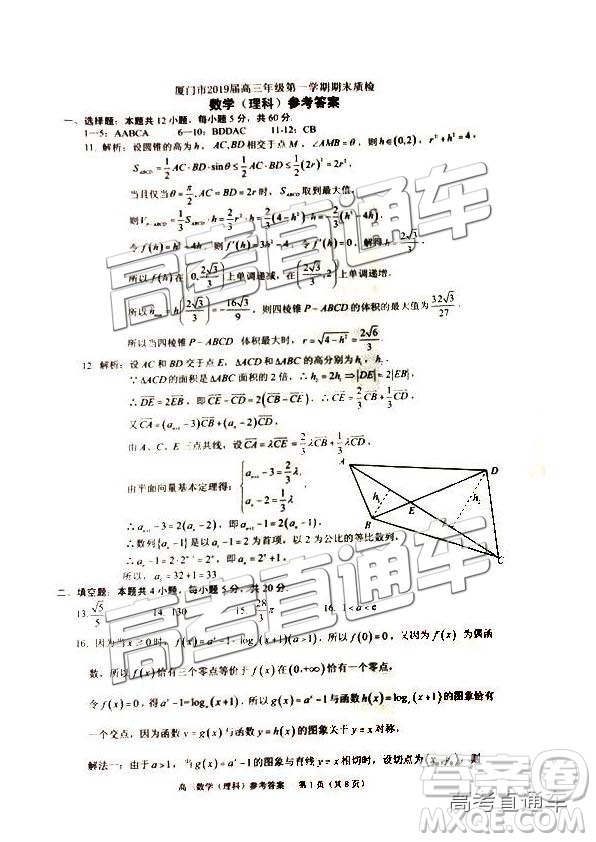 厦门市2019届高三年级第一学期期末质检
数学（理科）参考答案
一、选择题：本题共12小题，每小题5分，共60分.
1—5：AABCA 6—10：BDDAC 11-12：CB
11. 解析：设圆锥的高为h，AC,BD相交于点M，∠AMB=θ，则h∈(0,2)，r²+h²=4，
S_ABCD=1/2 AC·BD·sinθ≤1/2 AC·BD≤1/2(2r)²=2r²，
当且仅当θ=π/2，AC=BD=2r时，S_ABCD取到最大值，
则V_P-ABCD=1/3 S_ABCD·h=2/3 r²·h=2/3(4-h²)·h=-2/3(h³-4h).
令f(h)=h³-4h，则f′(h)=3h²-4，令f′(h)=0，解得h=2√3/3.
所以f(h)在(0,2√3/3)上单调递减，在(2√3/3,2)上单调递增.
则四棱锥P-ABCD的体积的最大值为32√3/27.
所以四棱锥P-ABCD 体积最大时，r=√4-h²=2√6/3.
12 解析：设AC和BD交于点E，△ACD和△ABC的高分别为h₂，h₁.
∵△ACD的面积是△ABC面积的2倍，∴h₂=2h₁⇒|DE|=2|EB|，
∴DE=2EB，即CE-CD=2(CB-CE)，∴CE=2/3CB+1/3CD，
又CA=(aₙ₊₁-3)CB+(aₙ-2)CD，
由A、C、E三点共线，设CA=λCE=2/3λCB+1/3λCD，
由平面向量基本定理得：{aₙ₊₁-3=2/3λ, aₙ-2=1/3λ
∴aₙ₊₁-3=2(aₙ-2)，即aₙ₊₁-1=2(aₙ-1)，
∴数列{aₙ-1}是以2为首项，以2为公比的等比数列，
∴aₙ-1=2·2ⁿ⁻¹=2ⁿ，即aₙ=2ⁿ+1，
所以，a₅=32+1=33
A
D
h₁
E
h₂
B
C
二、填空题：本题共4小题，每小题5分，共20分.
13. √5/5 14. 130 15. 28/3 π 16. 1<a<e
16. 因为当x≥0时，f(x)=aˣ-1-logₐ(x+1)(a>1)，所以f(0)=0，又因为f(x)为偶函
数，所以f(x)恰有三个零点等价于f(x)在(0,+∞)恰有一个零点，
令f(x)=0，得aˣ-1=logₐ(x+1)，所以g(x)=aˣ-1与函数h(x)=logₐ(x+1)的图象恰有
一个交点，因为函数g(x)与函数h(x)的图象关于y=x对称，
解法一：由于a>1，当g(x)=aˣ-1的图象与直线y=x相切时，设切点为(x₀,y₀)，则
高三数学（理科）参考答案 第1页（共8页）
高考直通车
高考直通车
高考直通车